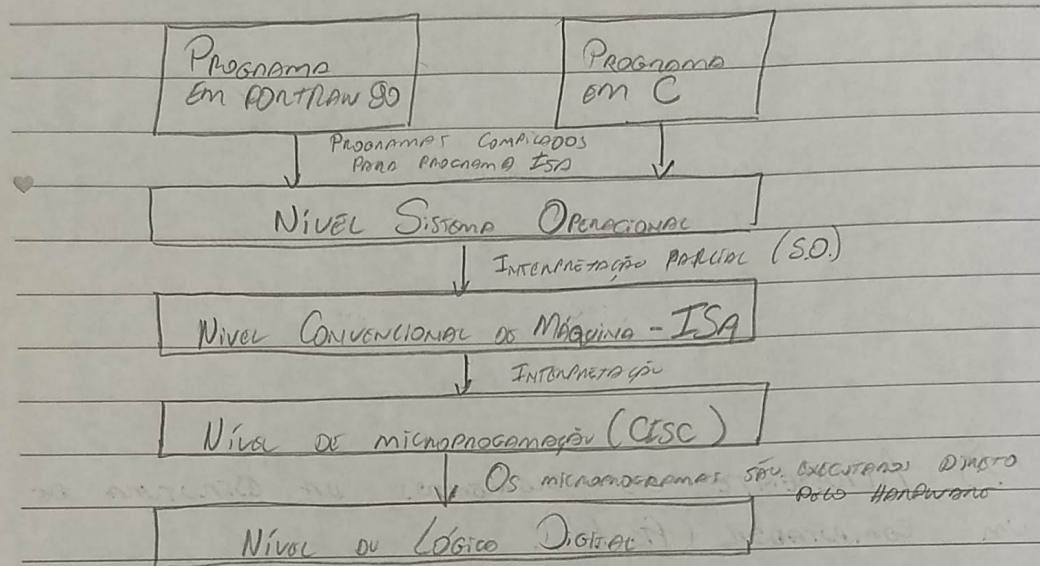 PROGRAMA
EM FORTRAN 90
PROGRAMA
EM C
PROGRAMAS COMPILADOS
PARA PROGRAMA ISA
NÍVEL SISTEMA OPERACIONAL
INTERPRETAÇÃO PARCIAL (S.O.)
NÍVEL CONVENCIONAL DE MÁQUINA - ISA
INTERPRETAÇÃO
NÍVEL DE MICROPROGAMAÇÃO (CISC)
OS MICROPROGRAMAS SÃO EXECUTADOS DIRETO
PELO HARDWARE.
NÍVEL DU LÓGICO DIGITAL